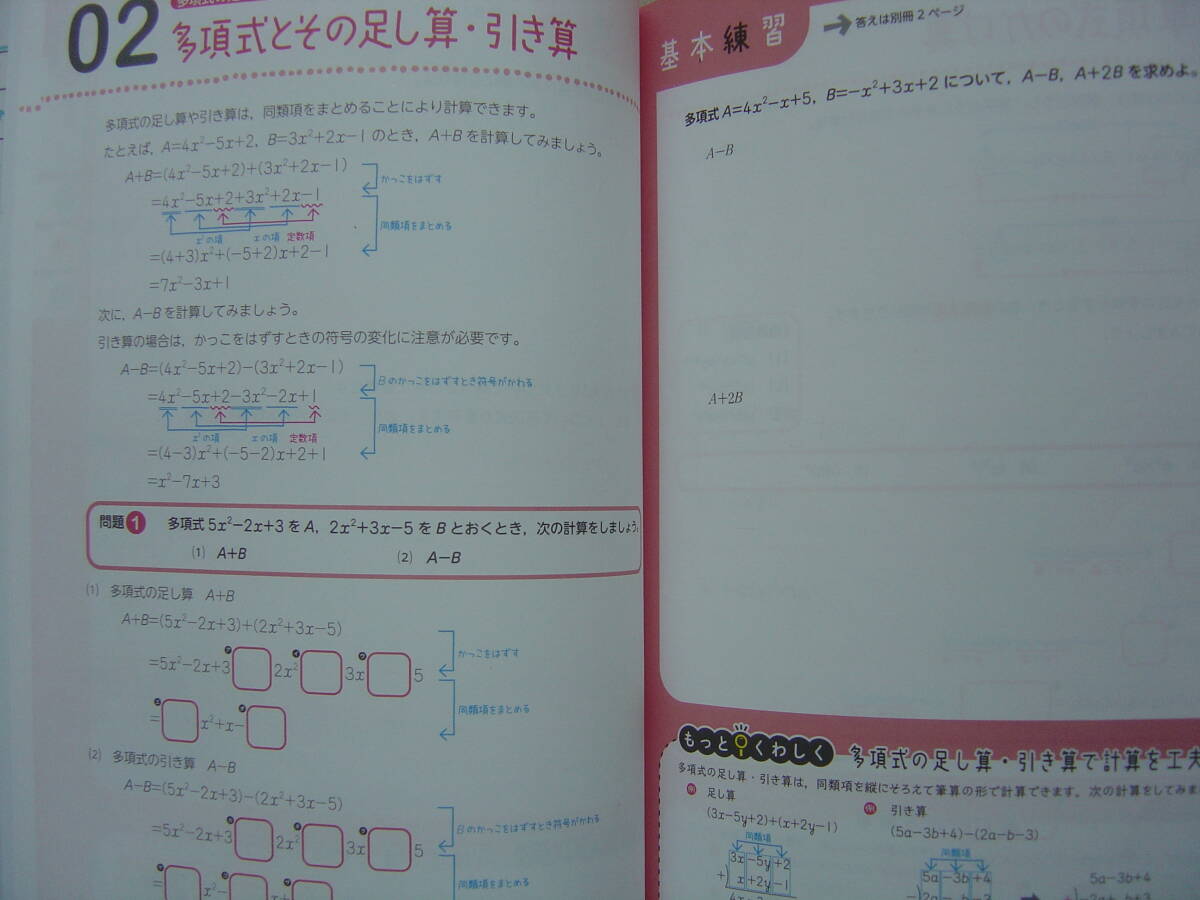 02 多項式とその足し算・引き算
多項式の足し算や引き算は，同類項をまとめることにより計算できます。
たとえば，A=4x²−5x+2，B=3x²+2x−1のとき，A+Bを計算してみましょう。
A+B=(4x²−5x+2)+(3x²+2x−1)
かっこをはずす
=4x²−5x+2+3x²+2x−1
同類項をまとめる
x²の項 xの項 定数項
=(4+3)x²+(−5+2)x+2−1
=7x²−3x+1
次に，A−Bを計算してみましょう。
引き算の場合は，かっこをはずすときの符号の変化に注意が必要です。
A−B=(4x²−5x+2)−(3x²+2x−1)
Bのかっこをはずすとき符号がかわる
=4x²−5x+2−3x²−2x+1
同類項をまとめる
x²の項 xの項 定数項
=(4−3)x²+(−5−2)x+2+1
=x²−7x+3
問題1 多項式5x²−2x+3をA，2x²+3x−5をBとおくとき，次の計算をしましょう。
(1) A+B (2) A−B
(1) 多項式の足し算 A+B
A+B=(5x²−2x+3)+(2x²+3x−5)
かっこをはずす
=5x²−2x+3 ア 2x² イ 3x ウ 5
同類項をまとめる
= エ x²+x− オ
(2) 多項式の引き算 A−B
A−B=(5x²−2x+3)−(2x²+3x−5)
Bのかっこをはずすとき符号がかわる
=5x²−2x+3 2x² 3x 5
同類項をまとめる
= x²−
基本練習
答えは別冊2ページ
多項式A=4x²−x+5，B=−x²+3x+2について，A−B，A+2Bを求めよ。
A−B
A+2B
もっとくわしく 多項式の足し算・引き算で計算を工夫
多項式の足し算・引き算は，同類項を縦にそろえて筆算の形で計算できます。次の計算をしてみま
例 足し算
(3x−5y+2)+(x+2y−1)
同類項
3x−5y+2
+) x+2y−1
例 引き算
(5a−3b+4)−(2a−b−3)
同類項
5a−3b+4
−) 2a− b−3
5a−3b+4
+)−2a+ b+3